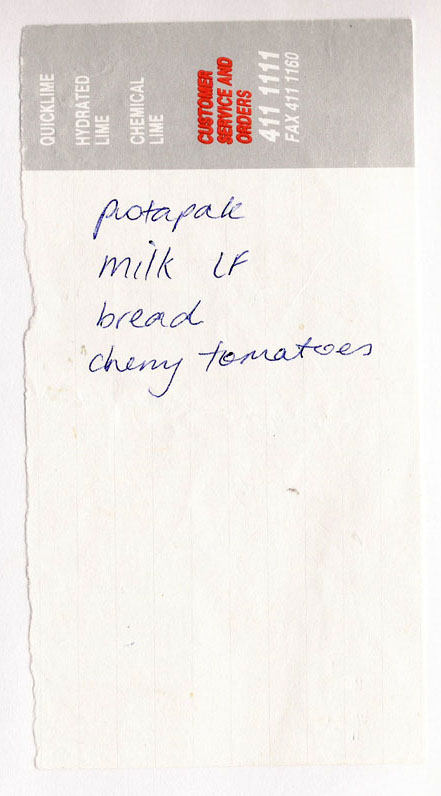 QUICKLIME
HYDRATED
LIME
CHEMICAL
LIME
CUSTOMER
SERVICE AND
ORDERS
411 1111
FAX 411 1160
protapak
milk LF
bread
cherry tomatoes